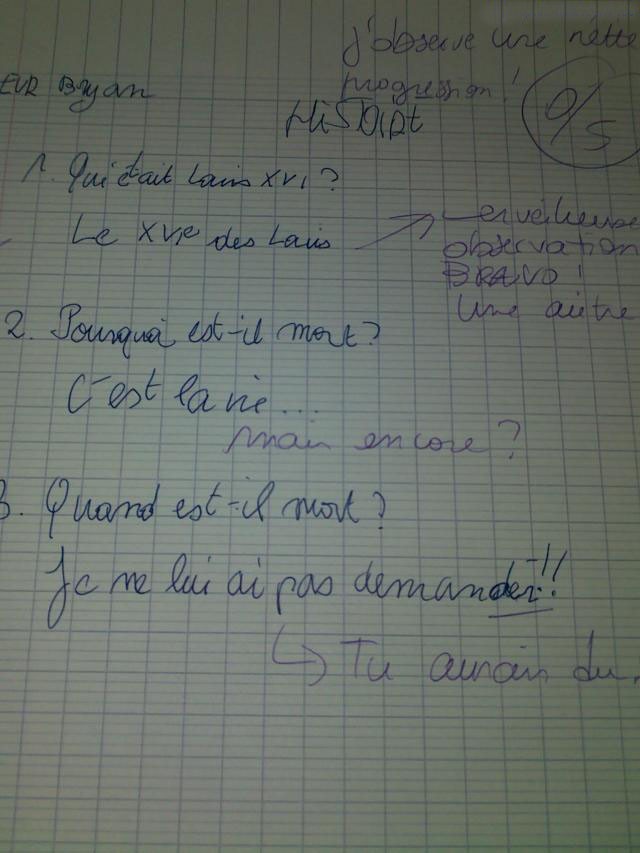 j'observe une nette
progression !
EUR Bryan
Histoire
0/5
1. Qui était Louis XVI ?
Le XVIe des Louis
erveilleuse
observation
BRAVO !
Une autre
2. Pourquoi est-il mort ?
C'est la vie...
mais encore ?
3. Quand est-il mort ?
Je ne lui ai pas demander !!!
Tu aurais du.